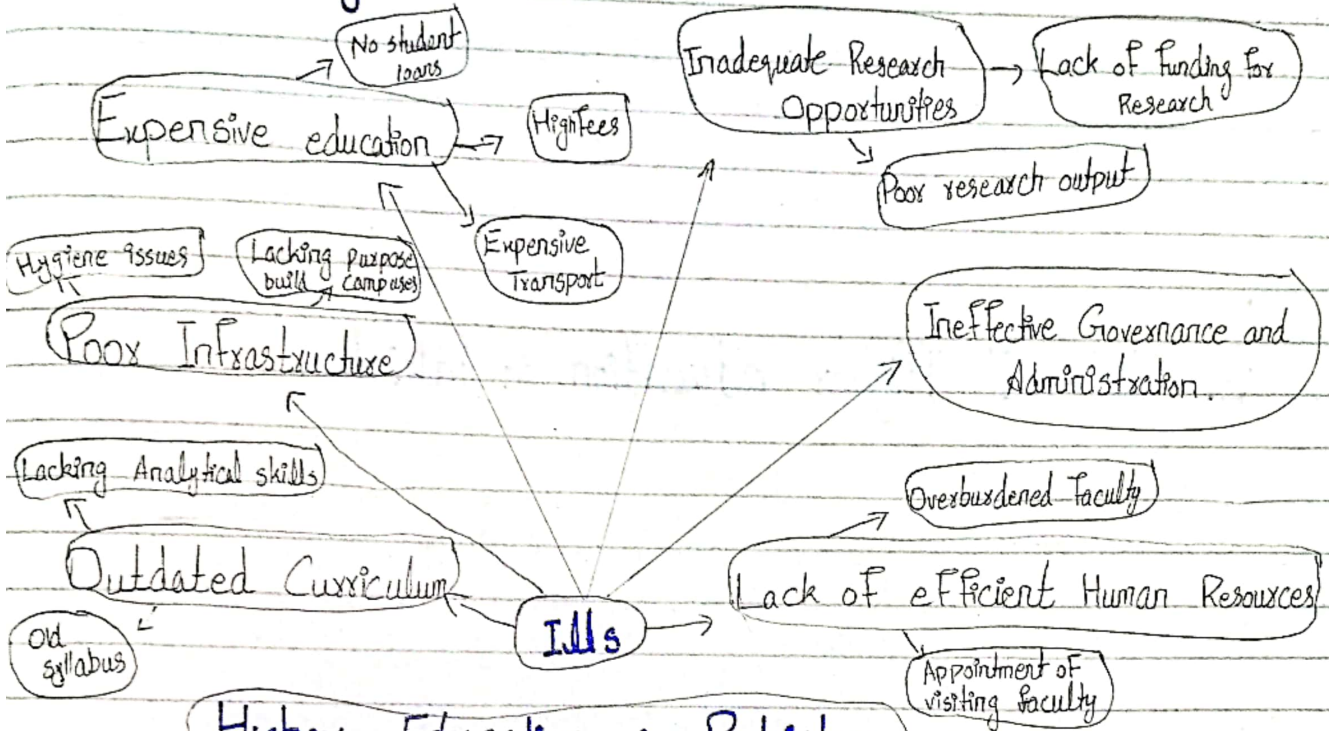 No student
loans
Expensive education
High Fees
Expensive
Transport
Inadequate Research
Opportunities
Lack of Funding for
Research
Poor research output
Hygiene issues
Lacking Purpose
build Campuses
Poor Infrastructure
Ineffective Governance and
Administration.
Lacking Analytical skills
Outdated Curriculum
Old
syllabus
Ills
Overburdened Faculty
Lack of efficient Human Resources
Appointment of
visiting faculty